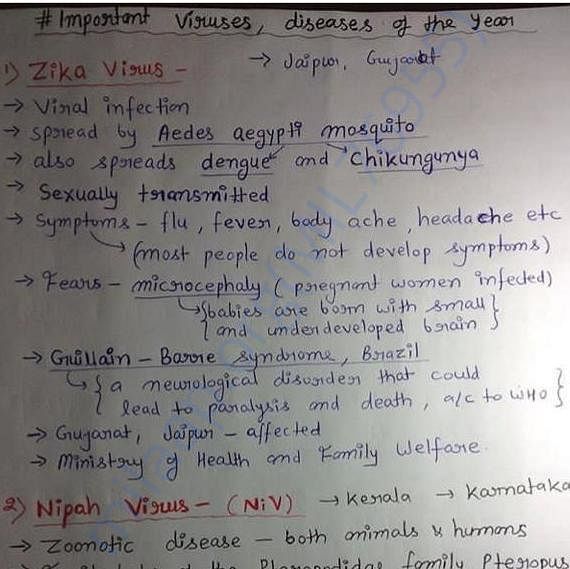 # Important Viruses, diseases of the Year
1) Zika Virus - → Jaipur, Gujarat
→ Viral infection
→ spread by Aedes aegypti mosquito
→ also spreads dengue and chikungunya
→ Sexually transmitted
→ Symptoms - flu, fever, body ache, headache etc
(most people do not develop symptoms)
→ Fears - microcephaly (pregnant women infected)
{babies are born with small}
{and underdeveloped brain}
→ Guillain - Barre syndrome, Brazil
{a neurological disorder that could
lead to paralysis and death, a/c to WHO}
→ Gujarat, Jaipur - affected
→ Ministry of Health and Family Welfare.
2) Nipah Virus - (NiV) → Kerala → Karnataka
→ Zoonotic disease - both animals & humans
family Pteropus